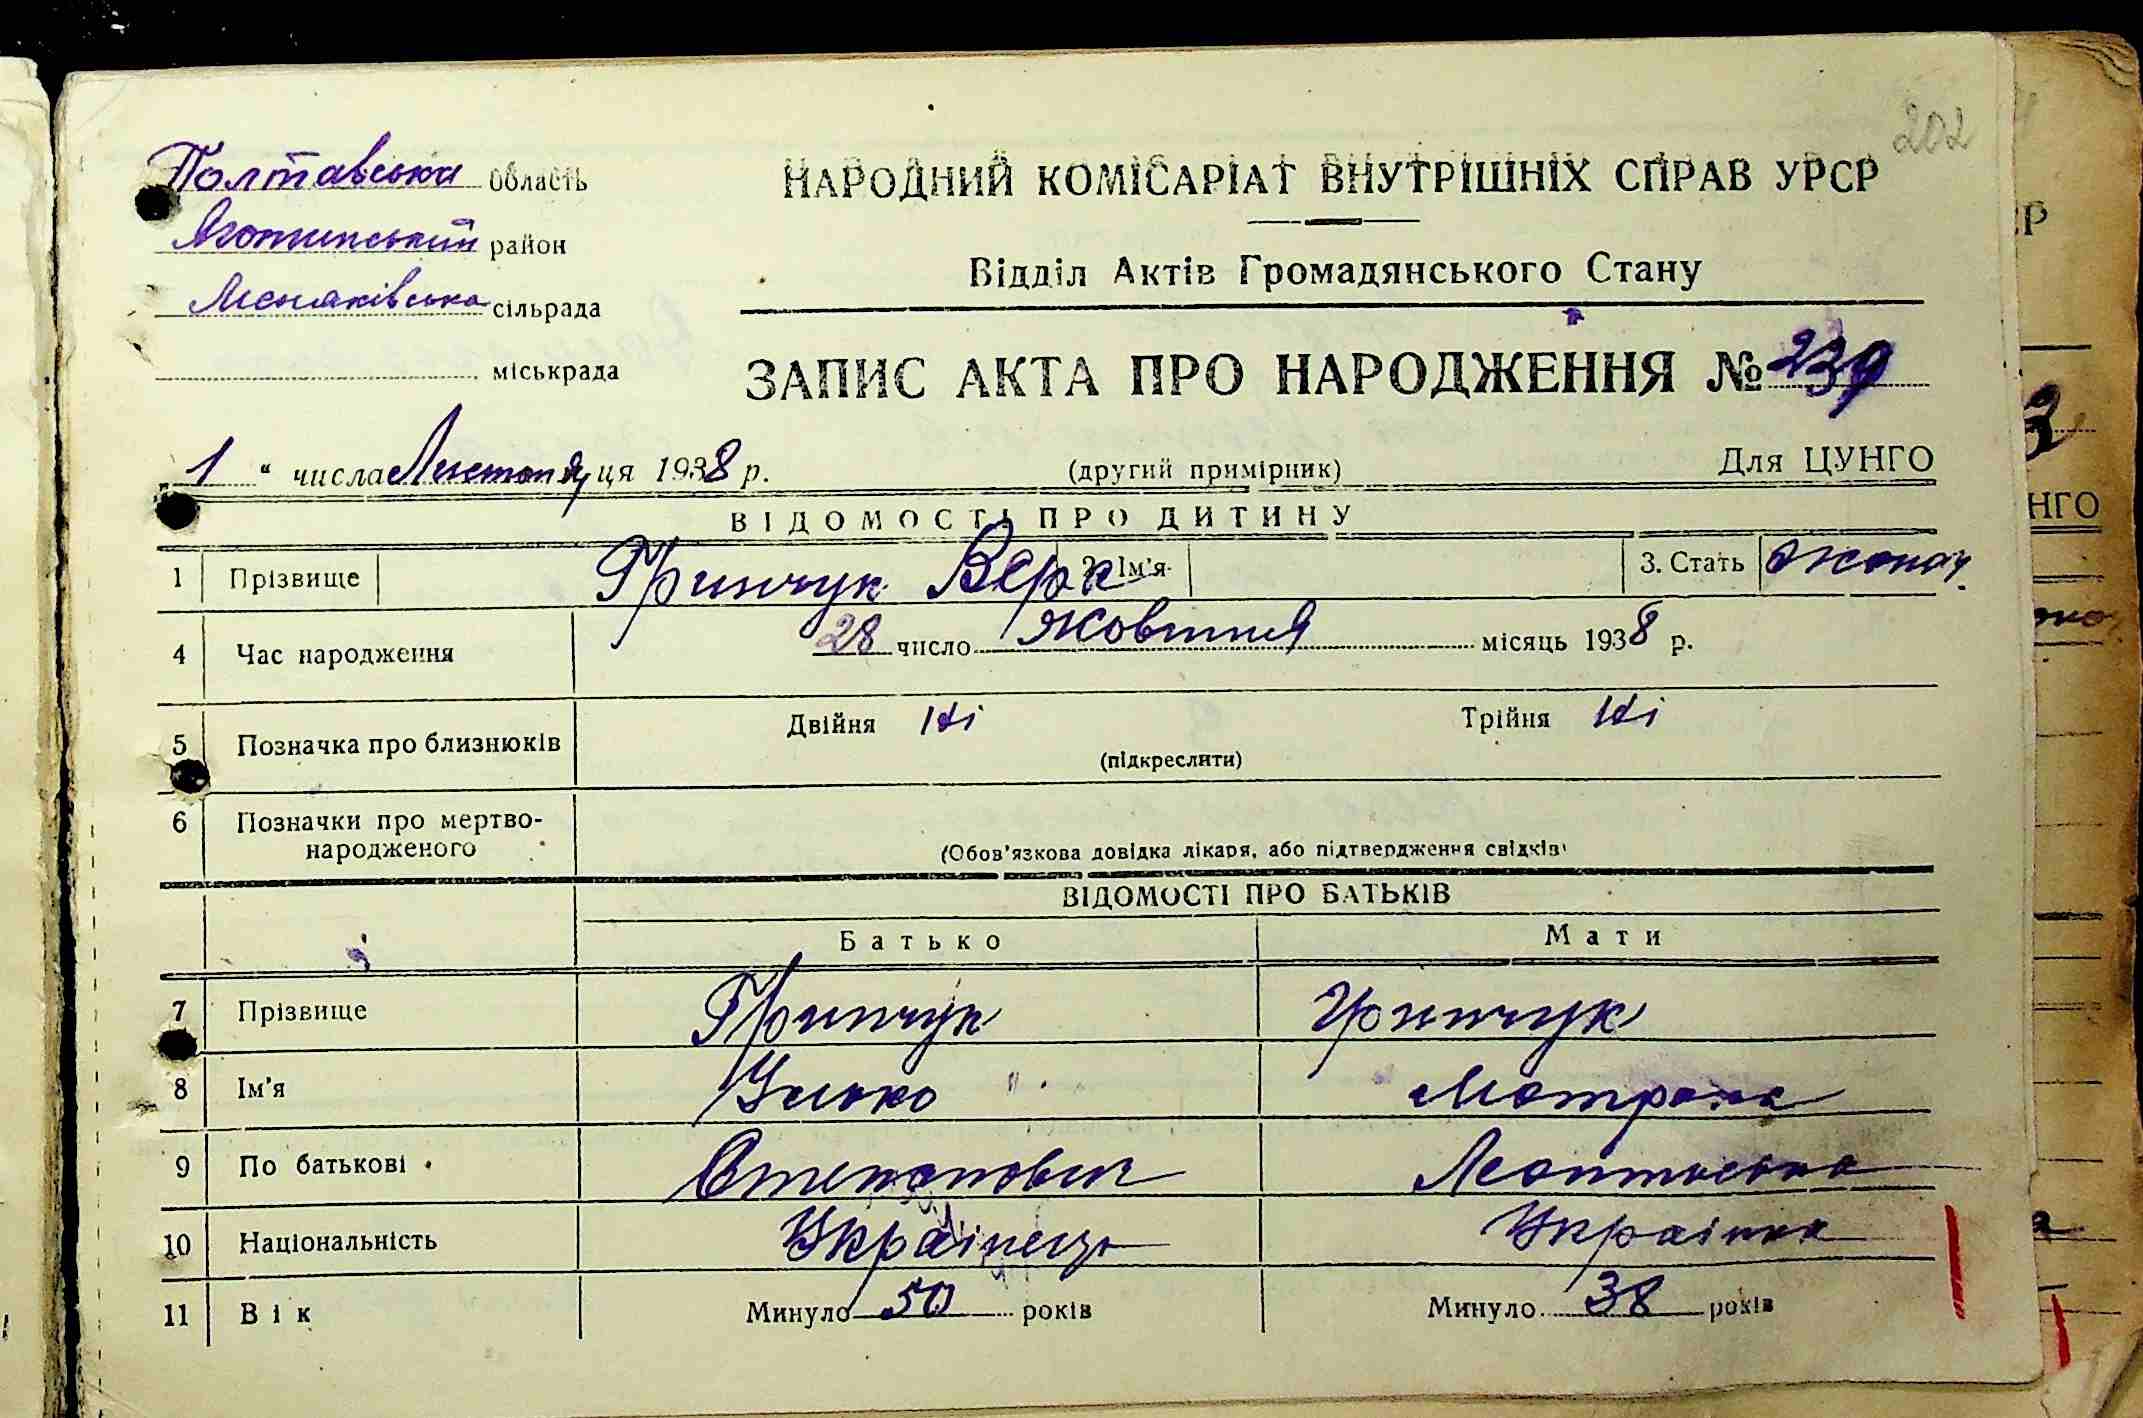 202
Полтавська область
НАРОДНИЙ КОМІСАРІАТ ВНУТРІШНІХ СПРАВ УРСР
Яготинський район
Відділ Актів Громадянського Стану
сільрада
міськрада
ЗАПИС АКТА ПРО НАРОДЖЕННЯ № 239
1 " числа Листопад ця 1938 р.
(другий примірник)
Для ЦУНГО
ВІДОМОСТІ ПРО ДИТИНУ
1 Прізвище Гринчук Вєра 2. Ім'я 3. Стать жоноч.
4 Час народження 28 число жовтня місяць 1938 р.
5 Позначка про близнюків Двійня Ні Трійня Ні
(підкреслити)
6 Позначки про мертво-
народженого
(Обов'язкова довідка лікаря, або підтвердження свідків)
ВІДОМОСТІ ПРО БАТЬКІВ
Батько Мати
7 Прізвище Гринчук Гринчук
8 Ім'я Мотрона
9 По батькові Степанович
10 Національність Українець Українка
11 Вік Минуло 50 років Минуло 38 років
УНГО